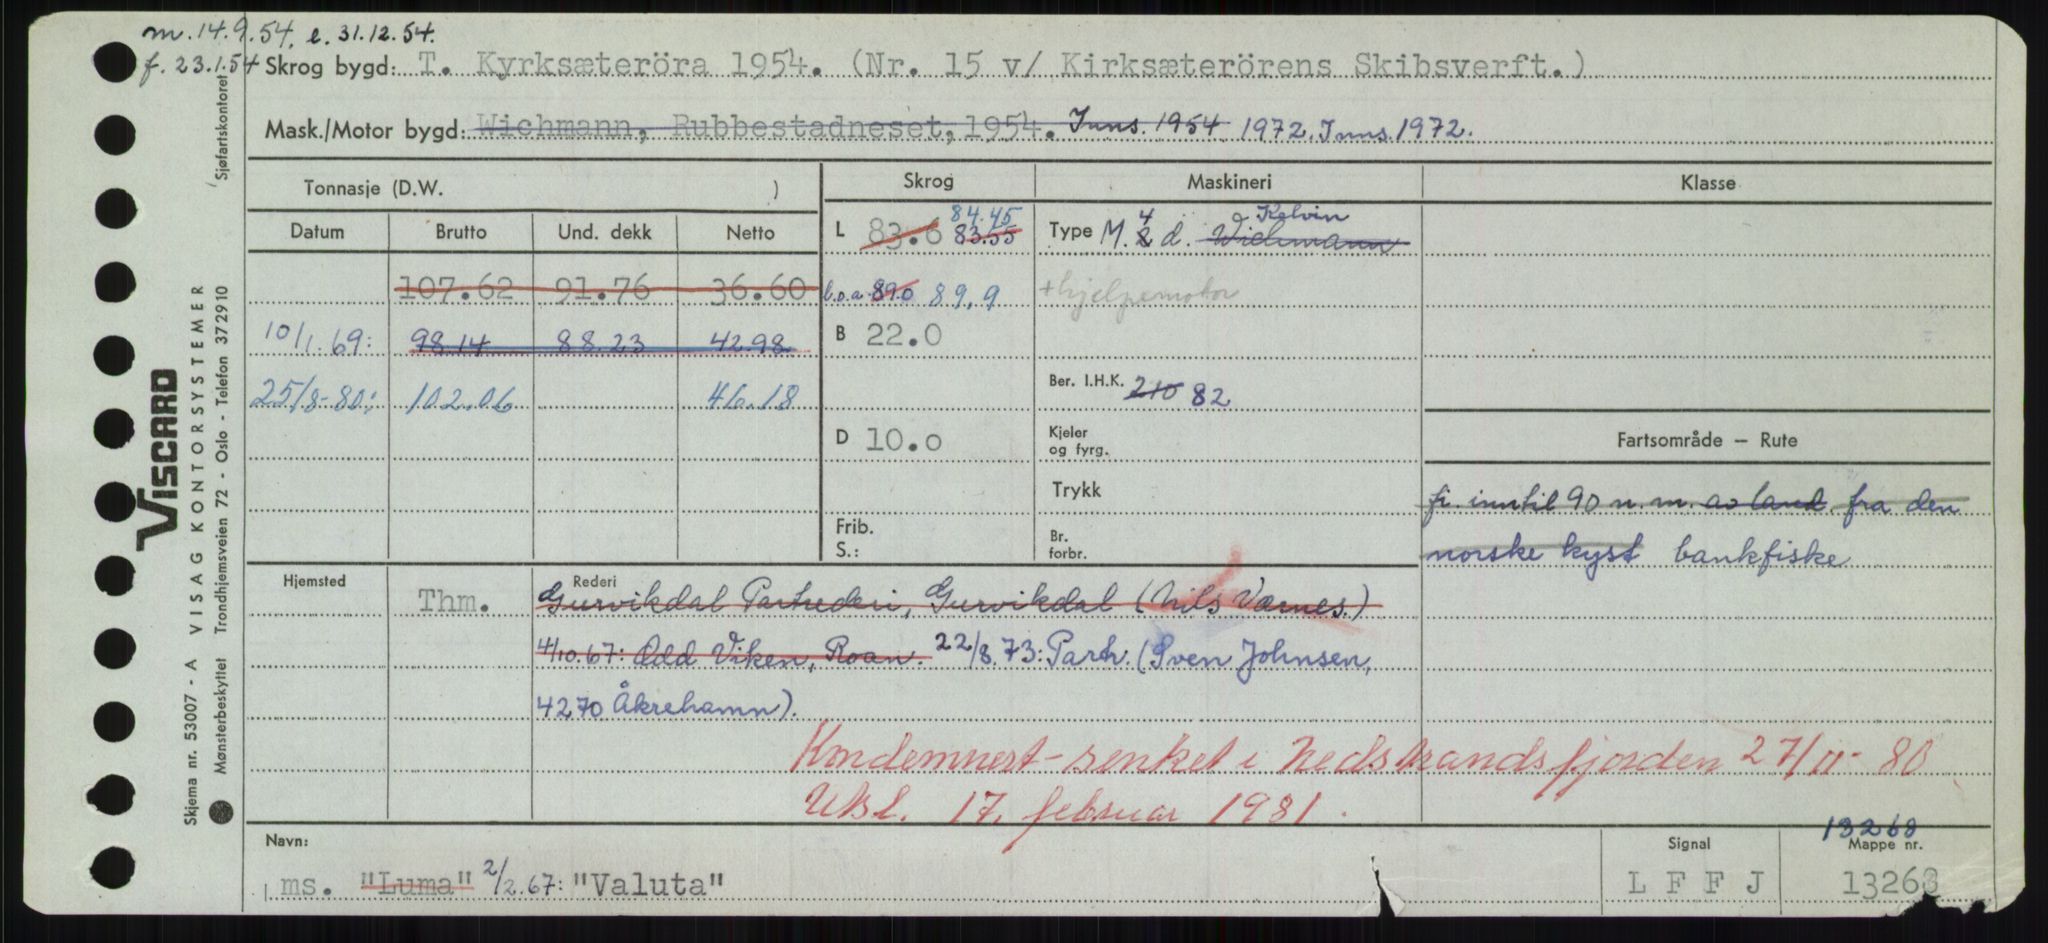 m. 14.9.54. e. 31.12.54.
f. 23.1.54 Skrog bygd: T. Kyrksæteröra 1954. (Nr. 15 v/ Kirksæterörens Skibsverft.)
Mask./Motor bygd: Wichmann, Rubbestadneset, 1954. Inns. 1954 1972. Inns. 1972.
Tonnasje (D.W. ) Skrog Maskineri Klasse
Datum Brutto Und. dekk Netto L 83.6 83.55 84.45 Type M. 2 4 d. Wichmann Kelvin
107.62 91.76 36.60 l.o.a. 89.0 89,9 + hjelpemotor
10/1.69: 98.14 88.23 42.98 B 22.0
25/8-80: 102.06 46.18 Ber. I.H.K. 210 82
D 10.0 Kjeler og fyrg. Fartsområde – Rute
Trykk fi. inntil 90 n.m. av land fra den
Frib. S.: Br. forbr. norske kyst bankfiske
Hjemsted Thm. Rederi Gurvikdal Partrederi, Gurvikdal (Nils Værnes.)
4/10.67: Odd Viken, Roan. 22/8.73: Partr. (Sven Johnsen,
4270 Åkrehamn).
Kondemnert - senket i Nedstrandsfjorden 27/11-80
Ubl. 17. februar 1981.
Navn: Signal 13268 Mappe nr.
ms. "Luma" 2/2.67: "Valuta" L F F J 13268
Sjøfartskontoret
VISCARD
Skjema nr. 53007 - A VISAG KONTORSYSTEMER
Mønsterbeskyttet Trondhjemsveien 72 - Oslo - Telefon 37 29 10